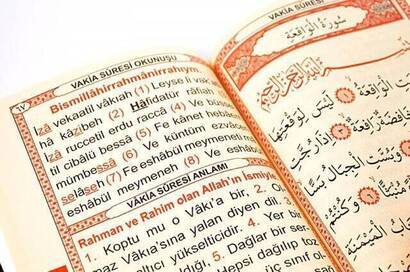 VAKİA SÛRESİ OKUNUŞU
Bismillâhirrahmânirrahıym.
İzâ vekaatil vâkıah (1) Leyse li vak
hâ kâzibeh (2) Hâfidatür râfiah
İzâ ruccetil erdu raccâ (4) Ve büs
til cibâlü bessâ (5) Fe kânet heb
mümbessâ (6) Ve küntüm ezvâc
selâseh (7) Fe eshâbül meymeneti
eshâbül meymeneh (8) Ve esh
VAKİA SÛRESİ ANLAMI
Rahman ve Rahim olan Allah'ın ismiyle
1. Koptu mu o Vâkı'a bir, 2. O
maz Vâkıa'sına yalan diyen dil.
altıcı yükselticidir. 4. Yer bir
5. Dağlar bir ser
hepsi dağılıp toz
VAKİA SÛRESİ
سُورَةُ الْوَاقِعَةِ
إِذَا وَقَعَتِ الْوَاقِعَةُ لَيْسَ لِوَقْعَتِهَا
كَاذِبَةٌ خَافِضَةٌ رَافِعَةٌ إِذَا رُجَّتِ
وَبُسَّتِ الْجِبَالُ بَسًّا
وَكُنْتُمْ
الْمَيْمَنَةِ